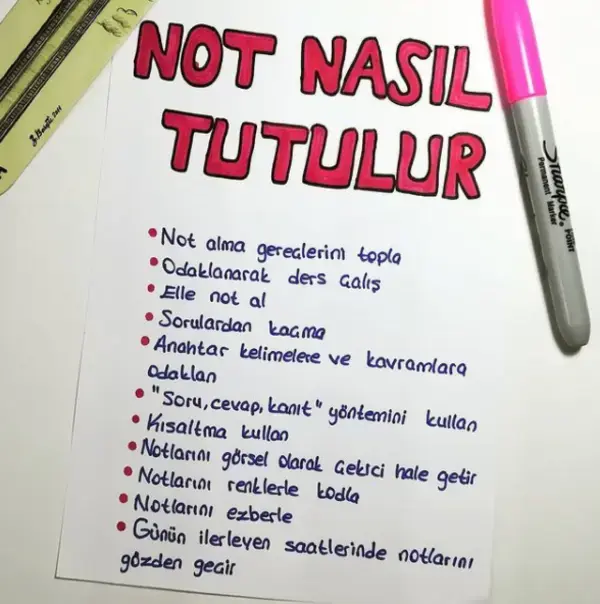 NOT NASIL
TUTULUR
• Not alma gereçlerini topla
• Odaklanarak ders çalış
• Elle not al
• Sorulardan kaçma
• Anahtar kelimelere ve kavramlara
odaklan
• "Soru, cevap, kanıt" yöntemini kullan
• Kısaltma kullan
• Notlarını görsel olarak çekici hale getir
• Notlarını renklerle kodla
• Notlarını ezberle
• Günün ilerleyen saatlerinde notlarını
gözden geçir
Sharpie
Permanent Marker
POINT